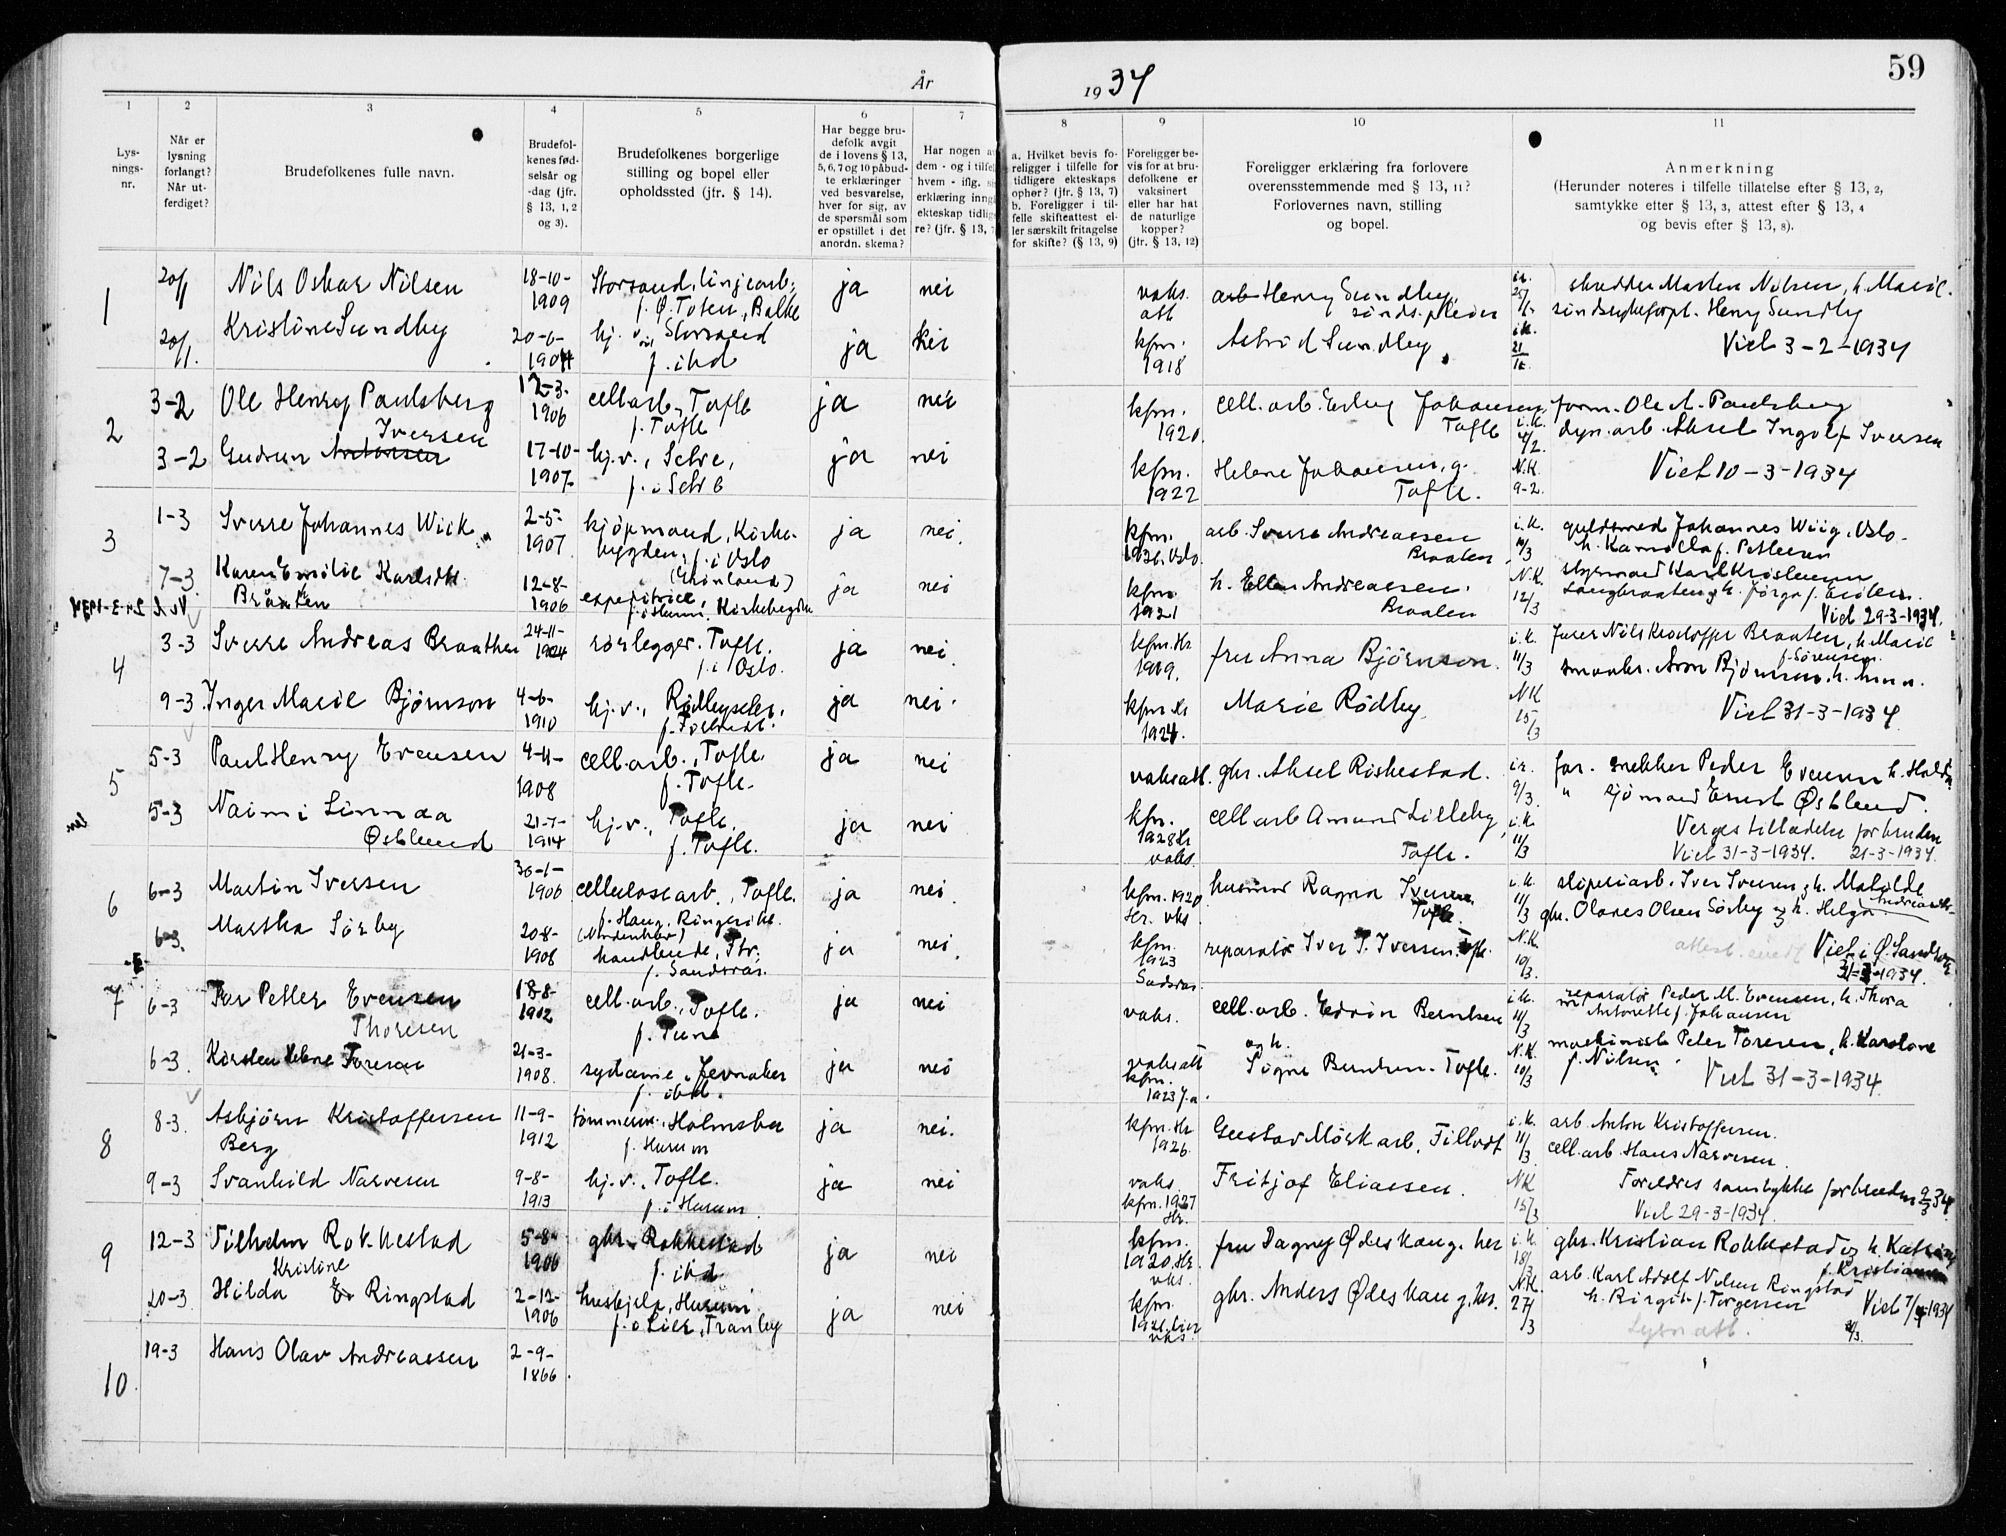 År 1934
59
1 2 3 4 5 6 7 8 9 10 11
Lys-
nings-
nr.
Når er
lysning
forlangt?
Når ut-
ferdiget?
Brudefolkenes fulle navn.
Brudefol-
kenes fød-
selsår og
-dag (jfr.
§ 13, 1, 2
og 3).
Brudefolkenes borgerlige
stilling og bopel eller
opholdssted (jfr. § 14).
Har begge bru-
defolk avgit
de i lovens § 13,
5, 6, 7 og 10 påbud-
te erklæringer
ved besvarelse,
hver for sig, av
de spørsmål som
er opstillet i det
anordn. skema?
Har nogen a
dem - og i tilfel
hvem - iflg. si
erklæring inng
ekteskap tidlig
re? (jfr. § 13, 7
a. Hvilket bevis fo-
religger i tilfelle for
tidligere ekteskaps
ophør? (jfr. § 13, 7)
b. Foreligger i til-
felle skifteattest el-
ler særskilt fritagelse
for skifte? (§ 13, 9)
Foreligger be-
vis for at bru-
defolkene er
vaksinert
eller har hat
de naturlige
kopper?
(jfr. § 13, 12)
Foreligger erklæring fra forlovere
overensstemmende med § 13, 11?
Forlovernes navn, stilling
og bopel.
Anmerkning
(Herunder noteres i tilfelle tillatelse efter § 13, 2,
samtykke efter § 13, 3, attest efter § 13, 4
og bevis efter § 13, 8).
1
20/1 Nils Oskar Nilsen 18-10- Storsand, linjearb. ja nei vaks. arb Henry Sundby, i.k. skredder Marten Nilsen, h. Marie.
1909 f. Ø. Toten, Balke att sinds.pleier 25/1 sindsykeforpl. Henry Sundby
20/1. Kristine Sundby 20-6- hj. v. Storsand ja nei kfm. Astrid Sundby i.k. Viet 3-2-1934
1904 f. ibd 1918
2
3-2 Ole Henry Paulsberg 12-3- cell.arb., Tofte ja nei kfm. cell. arb. Erling Johansen, form. Ole A. Paulsberg
1906 f. Tofte 1920. Tofte i.k. 4/2. dyn.arb. Aksel Ingolf Iversen
Iversen
3-2 Gudrun Antonsen 17-10- hj.v., Sætre, ja nei kfm. Helene Johansen, g. N.K. Viet 10-3-1934
1907. f. i Sætre 1922 Tofte. 9-2.
3
1-3 Sverre Johannes Wiik 2-5- kjöpmand, Kirke- ja nei. kfm. arb. Sverre Andreassen i.k. guldsmed Johannes Wiig, Oslo.
1907 bygden, f. i Oslo Oslo. Braaten 10/3 h. Kamilla f. Pettersen
(Grönland)
7-3 Karen Emilie Karlsdtr. 12-8- expeditrice, ja nei kfm. h. Ellen Andreassen. N.K. styrmand Karl Kristensen
Bråten 1906 f. i Hurum, Kirkebygden 1921 Braaten 12/3 Langbraaten
Viet 29-3-1934.
4
3-3 Sverre Andreas Braathen 24-11- rörlegger. Tofte. ja nei kfm. Hr fru Anna Björnson. i.k. Nils Kristoffer Braaten, h. Marie
1904 f. i Oslo. 1919. 11/3 f. Sörensen.
9-3. Inger Marie Bjørnson 4-6- hj.v., Rødbyseter. ja nei. kfm. Hr Marie Rødby N.K. Aron Björnson, h. Anna.
1910 1924. 15/3 Viet 31-3-1934.
5
5-3 Paul Henry Evensen 4-4- cell.arb., Tofte. ja nei vaksatt. gbr. Aksel Rishestad. i.k. far. snekker Peder Evensen h. Hulda
1908 f. Tofte. 9/3. " sjömand Ernst Østlund.
5-3 Naimi Linnæa 21-7- hj.v., Tofte. ja nei kfm. cell arb Amund Lilleby, i.k. Verges tilladelse for bruden
Østlund 1914 f. Tofte. 1928 Hr vaks. Tofte. 11/3 Viet 31-3-1934. 21-3-1934.
6
6-3 Martin Iversen 30-1- cellulosearb., Tofte. ja nei kfm. 1920 husmor Ragna Iversen i.k. sliperiarb. Iver Iversen g h. Mathilde
1906 f. Haug, Ringerike Hr. vks Tofte. 11/3 gbr. Olaves Olsen Sørby og h. Helga
(Norderhov)
6-3. Martha Sørby 20-8- ja nei. kfm. reparatör Iver P. Iversen. Tofte. N.K. Viet i Ø. Sandsvær
1908 f. Sandsvær. 1923 10/3. 31-3-1934.
7
6-3 Tor Petter Evensen 18-8- cell.arb., Tofte. ja nei vaks. cell.arb. Edvin Berntsen i.k. reparatör Peder M. Evensen, h. Thora
Thoresen 1902 f. Tune og h. 11/3 Antonette f. Johansen
6-3. Kirsten Helene Toresen 21-3- sydame, Jevnaker ja nei vaksatt Signe Berntsen. Tofte. N.K. maskinist Peter Toresen, h. Karoline
1908. f. ibd. kfm. 10/3 f. Nilsen.
1923 J.a. Viet 31-3-1934.
8
8-3. Asbjörn Kristoffersen 11-9- tømmerm., Holmsbu ja nei. kfm. Hr Gustav Mörk arb. Filtvedt i.k. arb. Anton Kristoffersen.
Berg 1912 f. Hurum 1926. 11/3 cell.arb. Hans Narvesen.
9-3 Svanhild Narvesen 9-8- hj.v., Tofte. ja nei vaks. Fritjof Eliassen. NK Foreldres samtykke for bruden 9/3 34.
1913 f. i Hurum. kfm. 1927 Hr. 15/3 Viet 29-3-1934.
9
12-3 Vilhelm Rokkestad 5-8- gbr. Rokkestad ja nei kfm. fru Dagny Ødeskaug. her i.k. gbr. Kristian Rokkestad og h. Katrine
1906 f. ibd 1920. Hr. vks. 18/3 f. Kristiansen
Kristine
20-3. Hilda E. Ringstad 2-12- hushjelp, Hurum ja nei kfm. gbr. Anders Ødeskaug, her. N.K. arb. Karl Adolf Nilsen Ringstad
1906 f. i Lier, Tranby 1921 Lier vks. 27/3 h. Birgit f. Torgersen Viet 7/4-1934
Lysn att.
10
19-3 Hans Olav Andreassen 2-9-
1866.